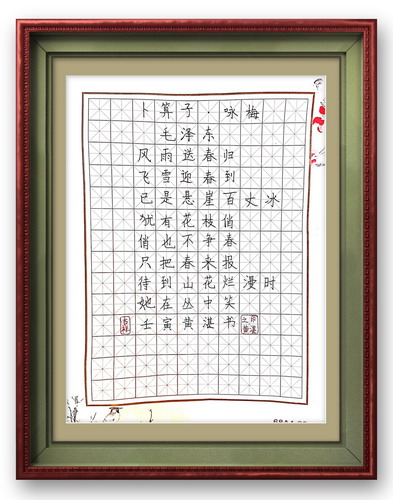 卜算子·咏梅
毛泽东
风雨送春归
飞雪迎春到
已是悬崖百丈冰
犹有花枝俏
俏也不争春
只把春来报
待到山花烂漫时
她在丛中笑
吉祥 壬寅黄湛书